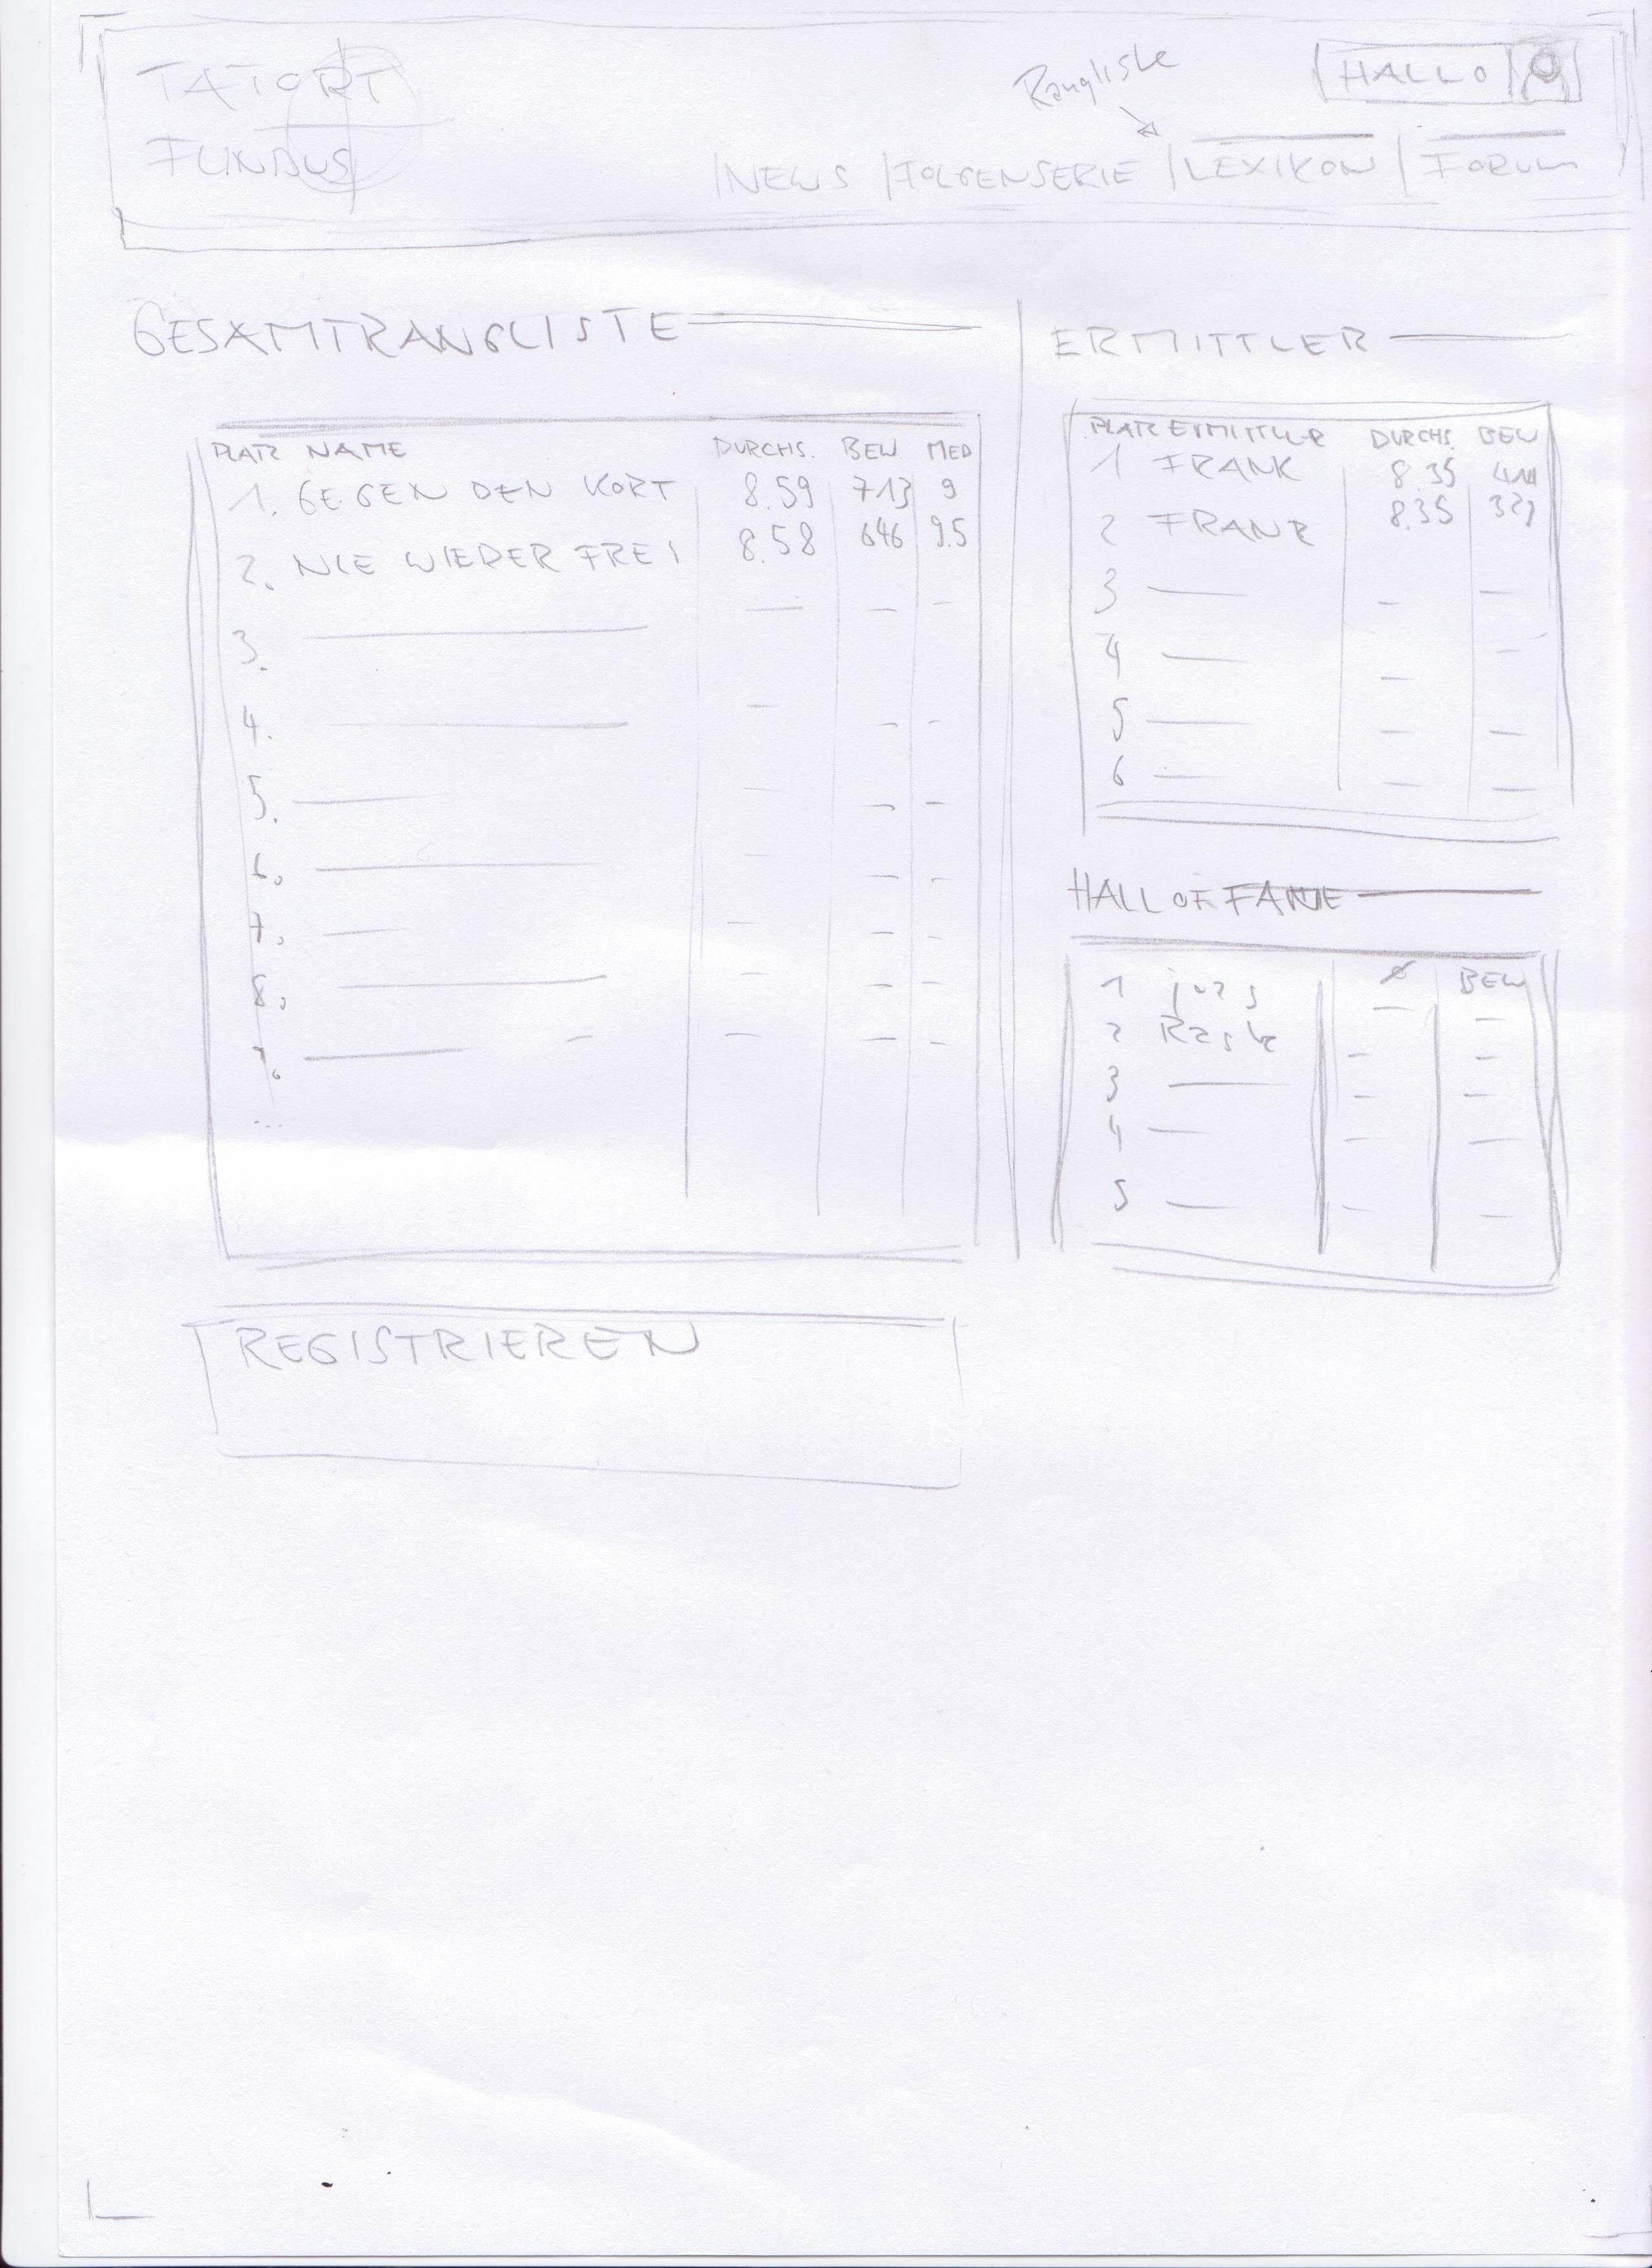 TATORT
FUNDUS
Rangliste
HALLO
|NEWS |FOLGENSERIE |LEXIKON | FORUM
GESAMTRANGLISTE
PLATZ NAME DURCHS. BEW. MED
1. GEGEN DEN KOPT 8.59 713 9
2. NIE WIEDER FREI 8.58 646 9.5
3.
4.
5.
6.
7.
8.
...
ERMITTLER
PLATZ ERMITTLER DURCHS. BEW
1 FRANK 8.35
2 FRANK 8.35
3
4
5
6
HALL OF FAME
Ø BEW
1
2
3
4
5
REGISTRIEREN